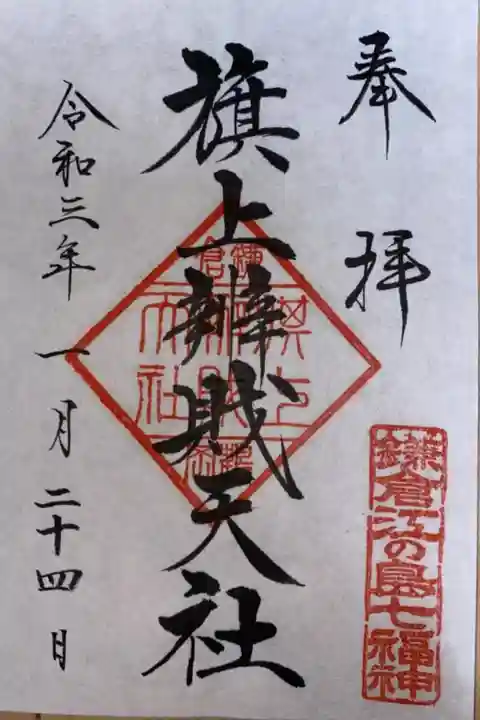 奉拝
鎌倉江の島七福神
旗上辨財天社
令和三年一月二十四日